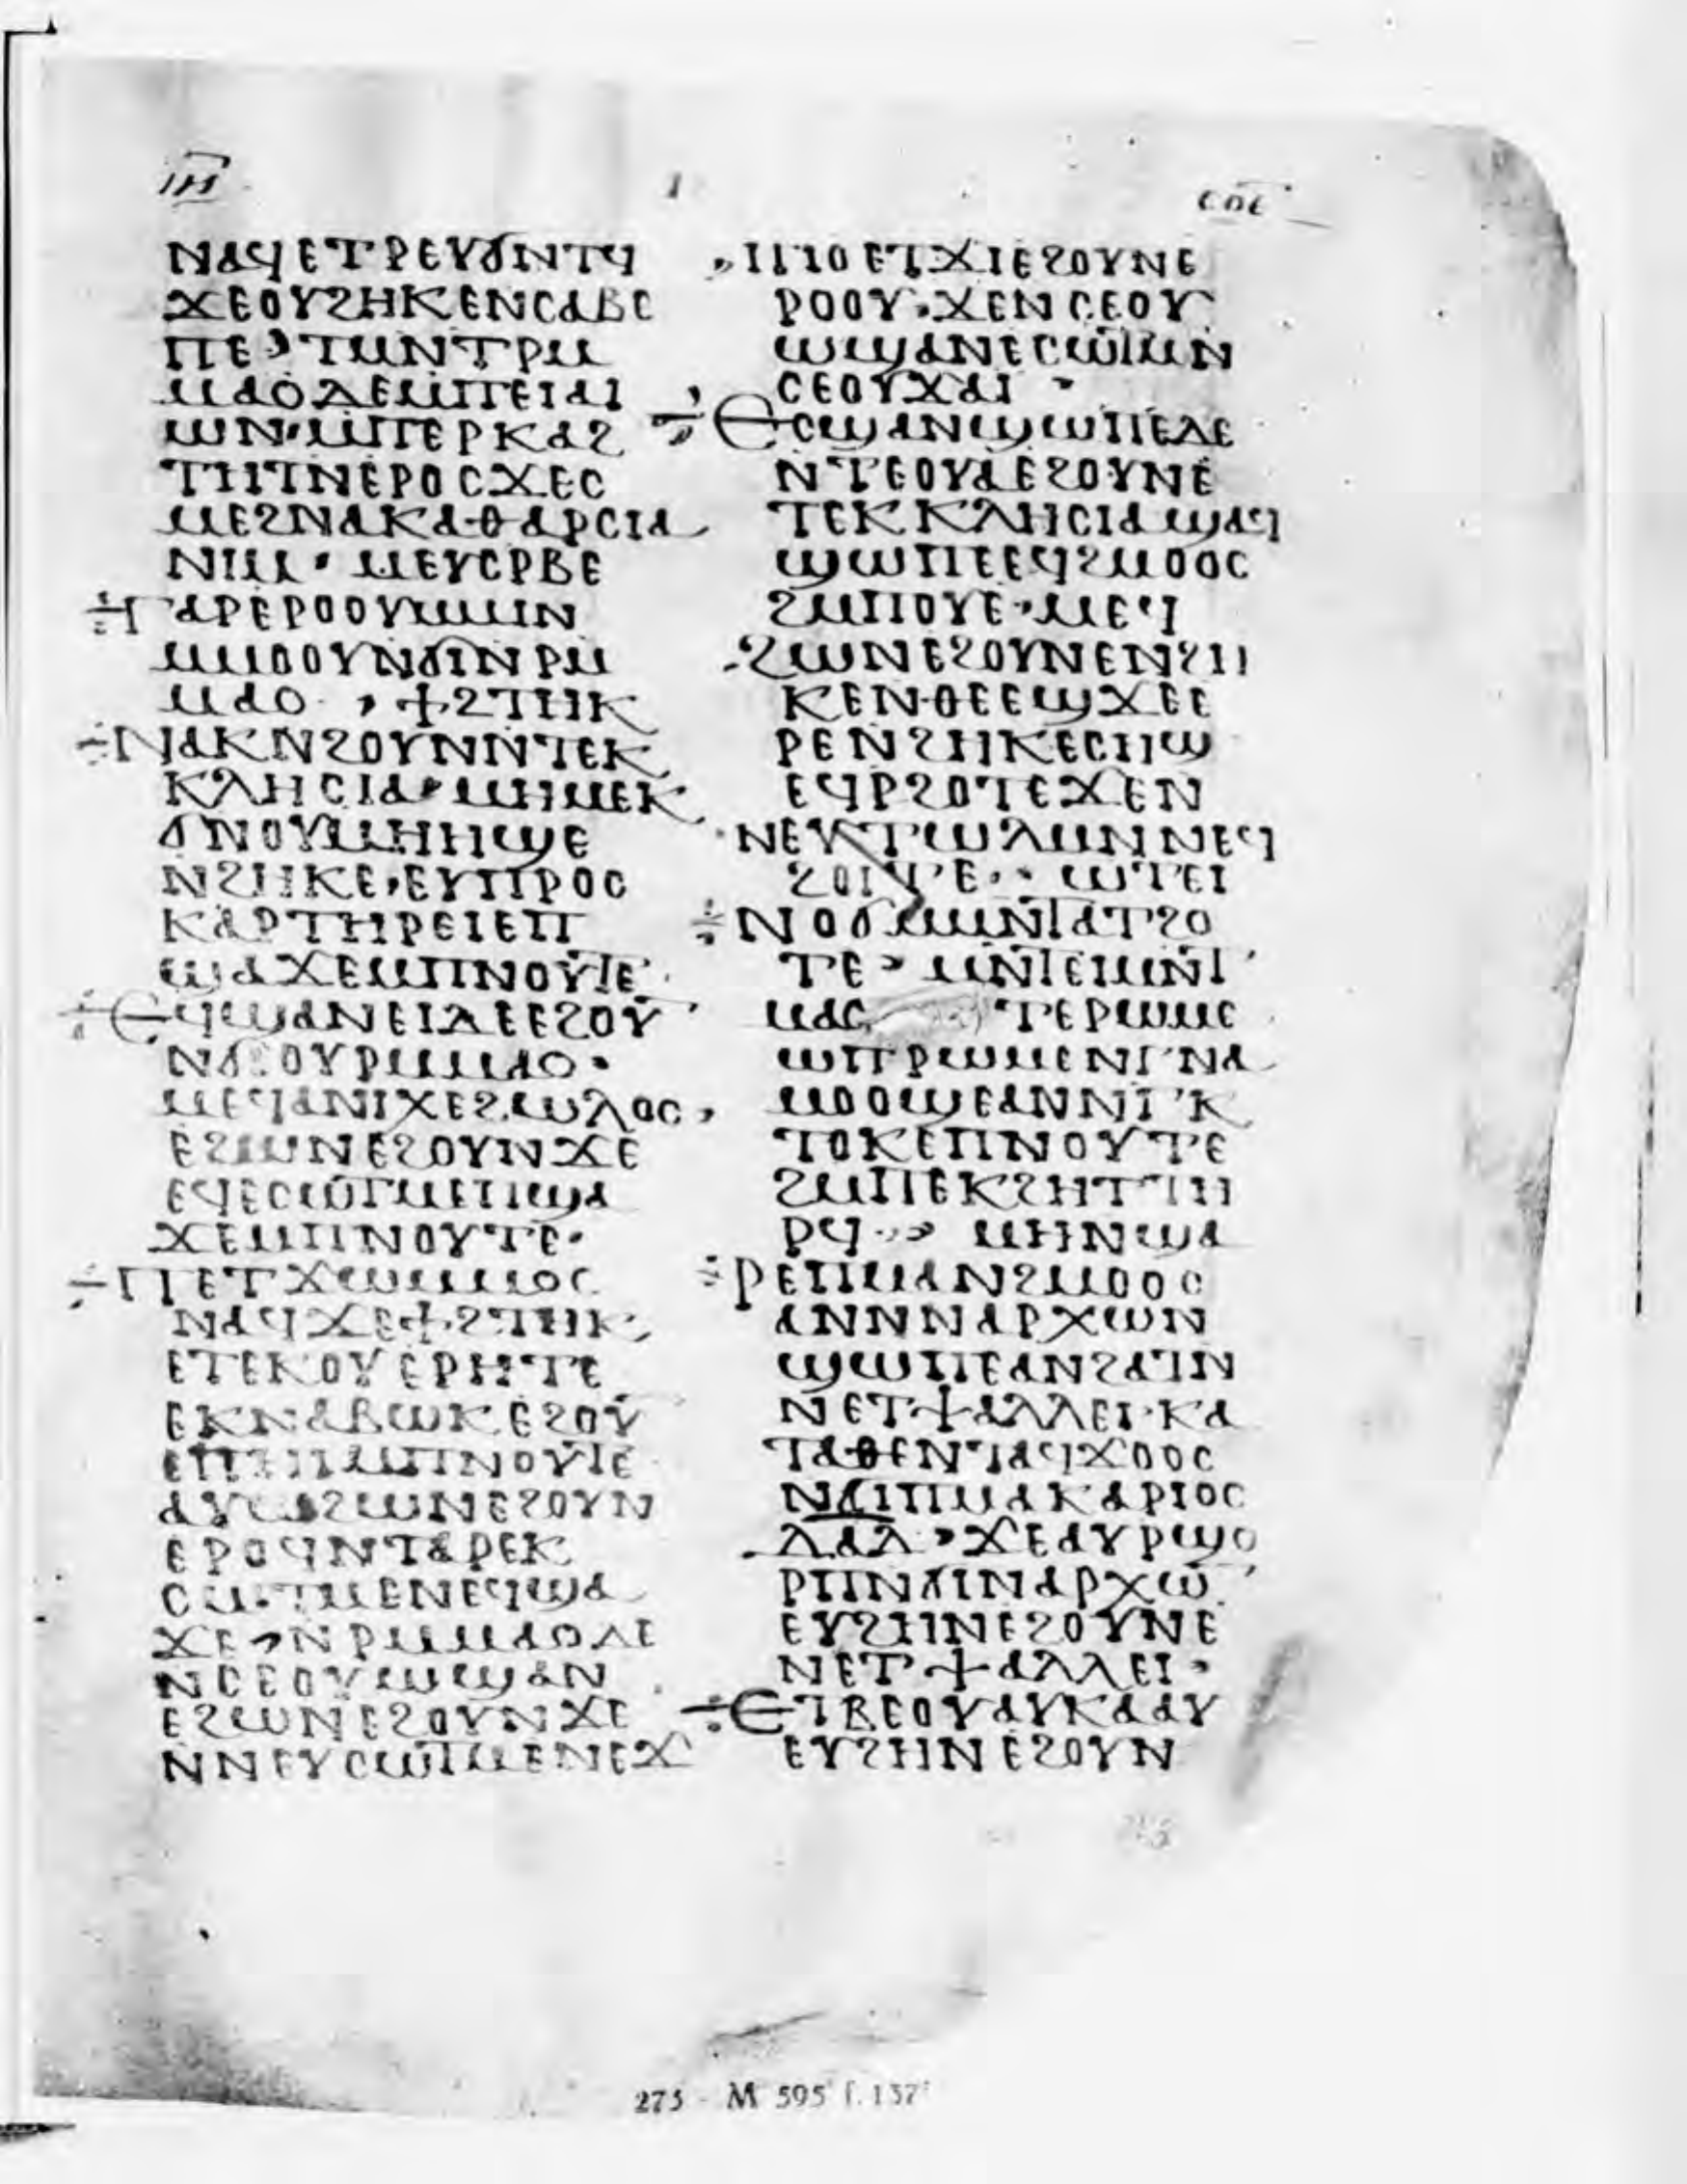 ⲓⲏ
ⲥⲟⲉ
ⲛⲁϥⲉⲧⲣⲉⲩϭⲛⲧϥ
ϫⲉⲟⲩϩⲏⲕⲉⲛⲥⲁⲃⲉ
ⲡⲉ ⲧⲙⲛⲧⲣⲙ
ⲙⲁⲟⲇⲉⲙⲡⲉⲓⲁⲓ
ⲱⲛ·ⲙⲡⲉⲣⲕⲁϩ
ⲧⲏⲧⲛⲉⲣⲟⲥϫⲉⲥ
ⲙⲉϩⲛⲁⲕⲁⲑⲁⲣⲥⲓⲁ
ⲛⲓⲙ· ⲙⲉⲩⲥⲣⲃⲉ
ⲅⲁⲣⲉⲣⲟⲟⲩⲙⲙⲓⲛ
ⲙⲙⲟⲟⲩⲛϭⲓⲛⲣⲙ
ⲙⲁⲟ· ϯϩⲧⲏⲕ
ⲛⲁⲕⲛϩⲟⲩⲛⲛⲧⲉⲕ
ⲕⲗⲏⲥⲓⲁ·ⲙⲏⲙⲉⲕ
ϭⲛⲟⲩⲙⲏⲏϣⲉ
ⲛϩⲏⲕⲉ·ⲉⲩⲡⲣⲟⲥ
ⲕⲁⲣⲧⲏⲣⲉⲓⲉⲡ
ϣⲁϫⲉⲙⲡⲛⲟⲩⲧⲉ
ⲉϥϣⲁⲛⲉⲓⲇⲉⲉϩⲟⲩ̅
ⲛϭⲓⲟⲩⲣⲙⲙⲁⲟ·
ⲙⲉϥⲁⲛⲓⲭⲉϩⲱⲗⲟⲥ
ⲉϩⲱⲛⲉϩⲟⲩⲛϫⲉ
ⲉϥⲉⲥⲱⲧⲙⲉⲡϣⲁ
ϫⲉⲙⲡⲛⲟⲩⲧⲉ·
ⲡⲉⲧϫⲱⲙⲙⲟⲥ
ⲛⲁϥϫⲉϯϩⲧⲏⲕ
ⲉⲧⲉⲕⲟⲩⲉⲣⲏⲧⲉ
ⲉⲕⲛⲁⲃⲱⲕⲉϩⲟⲩ̅
ⲉⲡⲏⲓⲙⲡⲛⲟⲩⲧⲉ
ⲁⲩⲱϩⲱⲛⲉϩⲟⲩⲛ
ⲉⲣⲟϥⲛⲧⲁⲣⲉⲕ
ⲥⲱⲧⲙⲉⲛⲉϥϣⲁ
ϫⲉ ⲛⲣⲙⲙⲁⲟⲇⲉ
ⲛⲥⲉⲟⲩⲱϣⲁⲛ
ⲉϩⲱⲛⲉϩⲟⲩⲛϫⲉ
ⲛⲛⲉⲩⲥⲱⲧⲙⲉⲛⲉϫ
ⲡⲓⲟⲉⲧϫⲓⲉϩⲟⲩⲛⲉ
ⲣⲟⲟⲩ·ϫⲉⲛⲥⲉⲟⲩ
ⲱϣⲁⲛⲉⲥⲱⲧⲙⲛ
ⲥⲉⲟⲩϫⲁⲓ
ⲉⲥϣⲁⲛϣⲱⲡⲉⲇⲉ
ⲛⲧⲉⲟⲩⲁⲉϩⲟⲩⲛⲉ
ⲧⲉⲕⲕⲗⲏⲥⲓⲁϣⲁϥ
ϣⲱⲡⲉⲉϥϩⲙⲟⲟⲥ
ϩⲙⲡⲟⲩⲉ·ⲙⲉϥ
ϩⲱⲛⲉϩⲟⲩⲛⲉⲛϩⲏ
ⲕⲉⲛⲑⲉⲉϣϫⲉⲉ
ⲣⲉⲛϩⲏⲕⲉⲥⲏϣ
ⲉϥⲣϩⲟⲧⲉϫⲉⲛ
ⲛⲉⲩⲧⲱⲗⲙⲛⲛⲉϥ
ϩⲟⲓⲧⲉ·· ⲱⲧⲉⲓ
ⲛⲟϭⲙⲙⲛⲧⲁⲧϩⲟ
ⲧⲉ ⲙⲛⲧⲉⲓⲙⲛⲧ
ⲙⲁⲥ ⲧⲉⲣⲱⲙⲉ
ⲱⲡⲣⲱⲙⲉⲛⲅⲛⲁ
ⲙⲟⲟϣⲉⲁⲛⲛⲅⲕ
ⲧⲟⲕⲉⲡⲛⲟⲩⲧⲉ
ϩⲙⲡⲉⲕϩⲏⲧⲧⲏ
ⲣϥ·· ⲙⲏⲛϣⲁ
ⲣⲉⲡⲙⲁⲛϩⲙⲟⲟⲥ
ⲁⲛⲛⲛⲁⲣⲭⲱⲛ
ϣⲱⲡⲉⲁⲛϩⲁⲧⲛ
ⲛⲉⲧϯⲁⲗⲗⲉⲓ·ⲕⲁ
ⲧⲁⲑⲉⲛⲧⲁϥϫⲟⲟⲥ
ⲛϭⲓⲡⲙⲁⲕⲁⲣⲓⲟⲥ
ⲇⲁⲇ·ϫⲉⲁⲩⲣϣⲟ
ⲣⲡⲛϭⲓⲛⲁⲣⲭⲱ̅
ⲉⲩϩⲏⲛⲉϩⲟⲩⲛⲉ
ⲛⲉⲧϯⲁⲗⲗⲉⲓ·
ⲉⲧⲃⲉⲟⲩⲁⲩⲕⲁⲁⲩ
ⲉⲩϩⲏⲛⲉϩⲟⲩⲛ
273 - M 595 f. 137ʳ